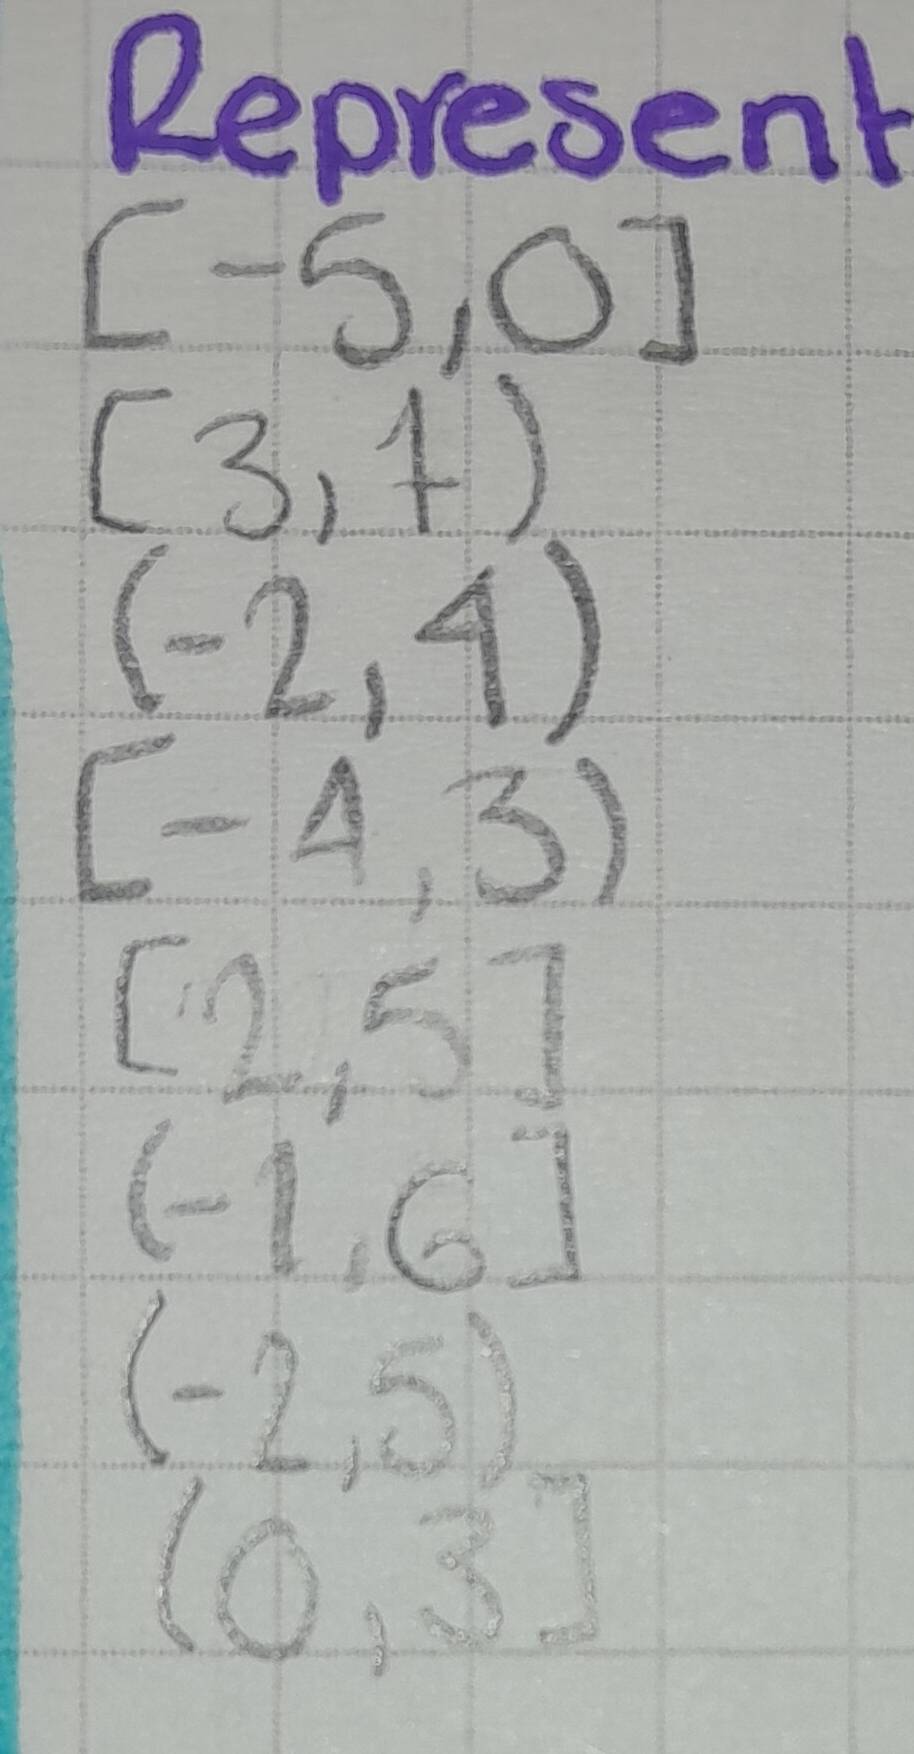 Represent
[-5,0]
[3,7)
(-2,4)
[-4,3)
[2,5]
(-1,6]
(-2,5)
(0,3]